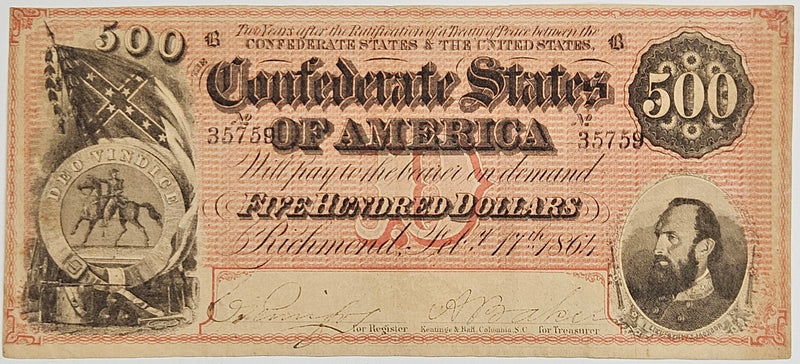 500 B Two Years after the Ratification of a Treaty of Peace between the B
CONFEDERATE STATES & THE UNITED STATES,
THE
Confederate States 500
No 35759 OF AMERICA No 35759
Will pay to the bearer on demand
DEO VINDICE
FIVE HUNDRED DOLLARS
D
Richmond, Feb.y 17th 1864
for Register Keatinge & Ball, Columbia, S.C. for Treasurer